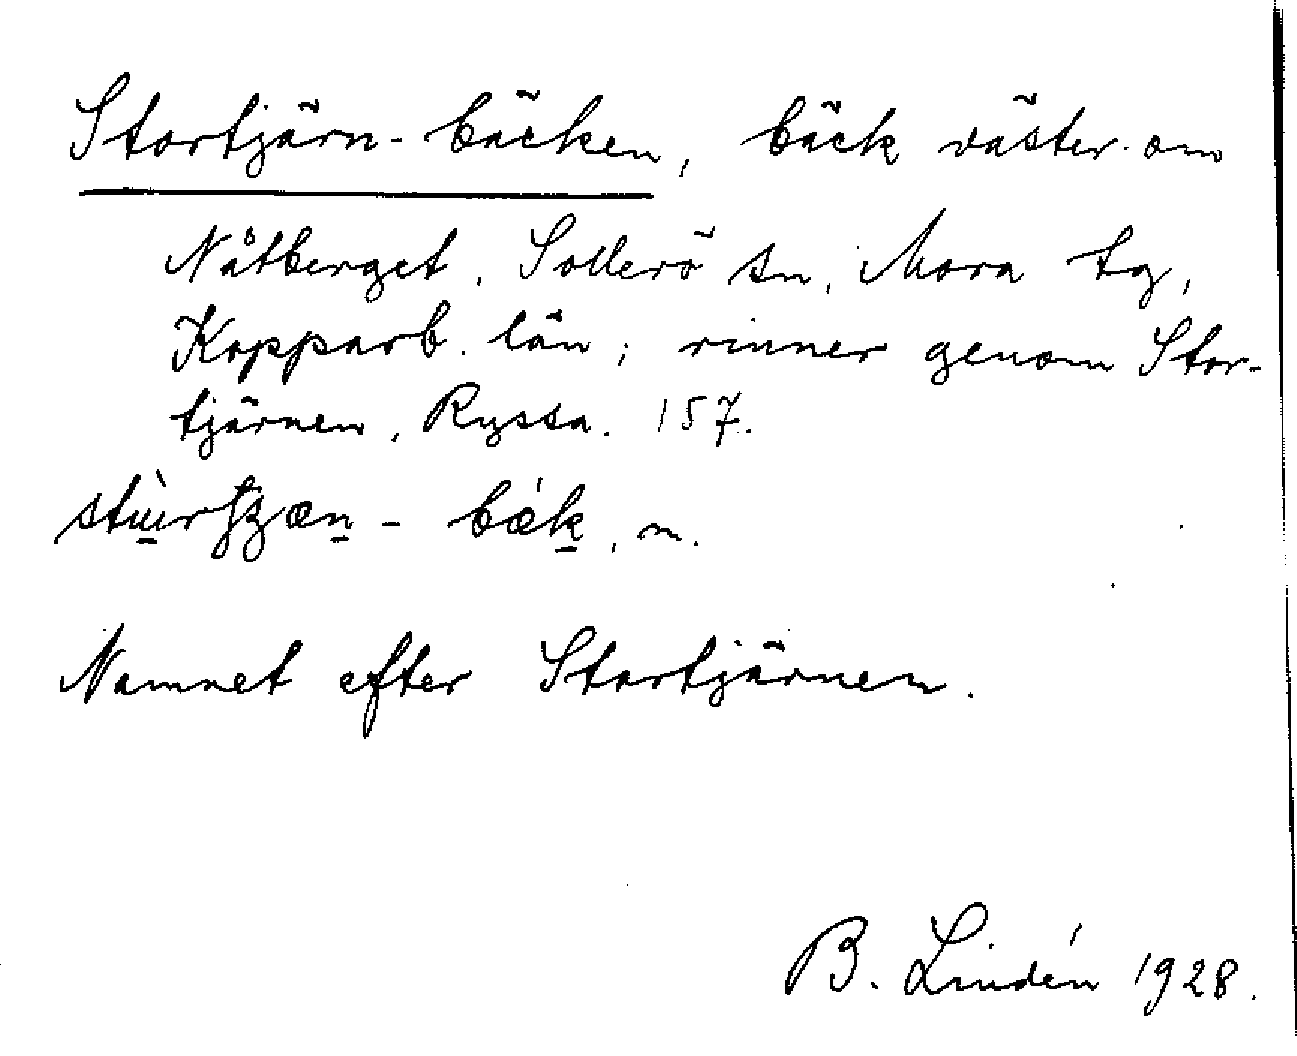 Stortjärn-bäcken, bäck väster om
Nåtberget, Sollerö sn, Mora tg,
Kopparb. län; rinner genom Stor-
tjärnen, Ryssa. 157.
bæ̀k, m.
Namnet efter Stortjärnen.
B. Lindén 1928.